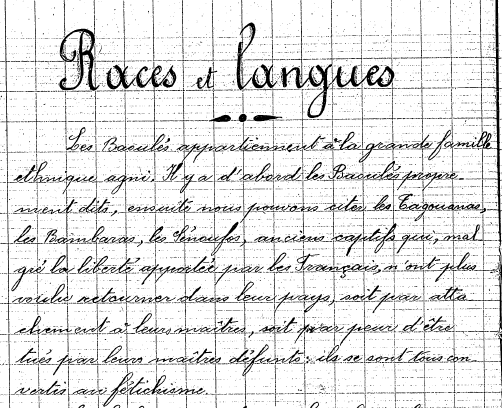 Races et langues
Les Baoulés appartiennent à la grande famille
ethnique agni. Il y a d'abord les Baoulés propre-
ment dits, ensuite nous pouvons citer les Tagouanas,
les Bambaras, les Sénoufos, anciens captifs qui, mal
gré la liberté apportée par les Français, n'ont plus
voulu retourner dans leur pays, soit par atta
chement à leurs maîtres, soit par peur d'être
tués par leurs maîtres défunts : ils se sont tous con-
vertis au fétichisme.